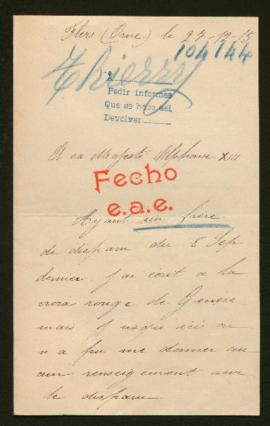 Flers (Orne) le 27-12-15
104144
Thierry
Pedir informes
Que se haga así
Devolver
A sa Majesté Alphonse XIII
Fecho
e.a.e.
Ayant un frère
de disparu du 5 Sep
dernier j'ai ecrit a la
croix rouge de Geneve
mais jusqu ici on
n a pu me donner au
cun renseignement sur
le disparu